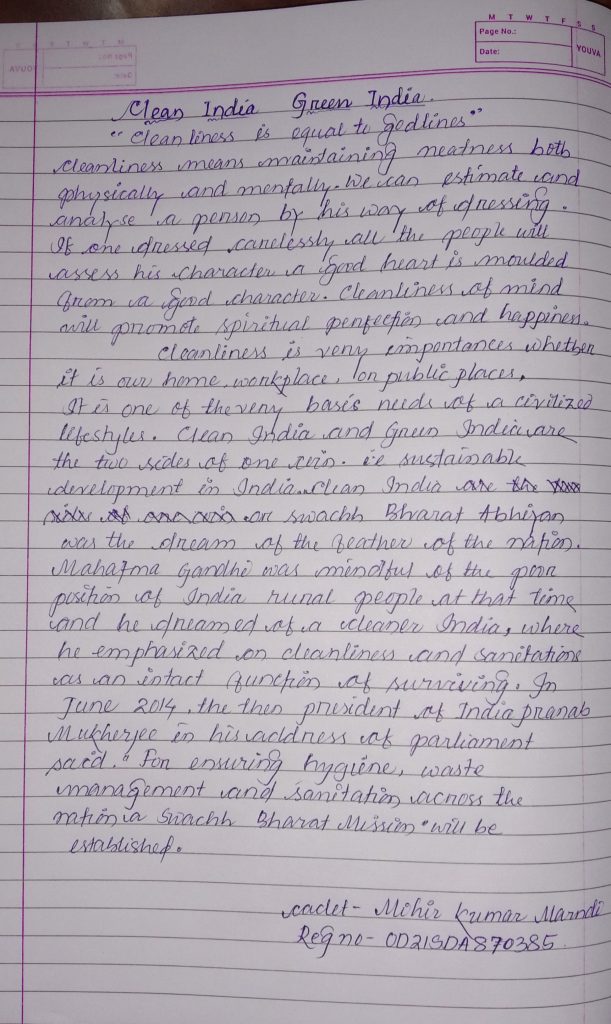 M T W T F S S
Page No.:
Date:
YOUVA
Clean India Green India.
"Cleanliness is equal to Godlines"
Cleanliness means maintaining neatness both
physically and mentally. We can estimate and
analyse a person by his way of dressing.
If one dressed carelessly all the people will
assess his character a good heart is moulded
from a good character. Cleanliness of mind
will promote spiritual perfection and happiness.
Cleanliness is very importances whether
it is our home, workplace, or public places,
It is one of the very basis needs of a civilized
lifestyles. Clean India and Green India are
the two sides of one coin. ie sustainable
development in India. Clean India are the
or swachh Bharat Abhijan
was the dream of the feather of the nation.
Mahatma Gandhi was mindful of the poor
position of India rural people at that time
and he dreamed of a cleaner India, where
he emphasized on cleanliness and sanitations
as an intact function of surviving. In
June 2014, the then president of India pranab
Mukherjee in his address of parliament
said. "For ensuring hygiene, waste
management and sanitation across the
nation a Swachh Bharat Mission" will be
established.
cadet- Mihir Kumar Marndi
Reg no- OD21SDA870385